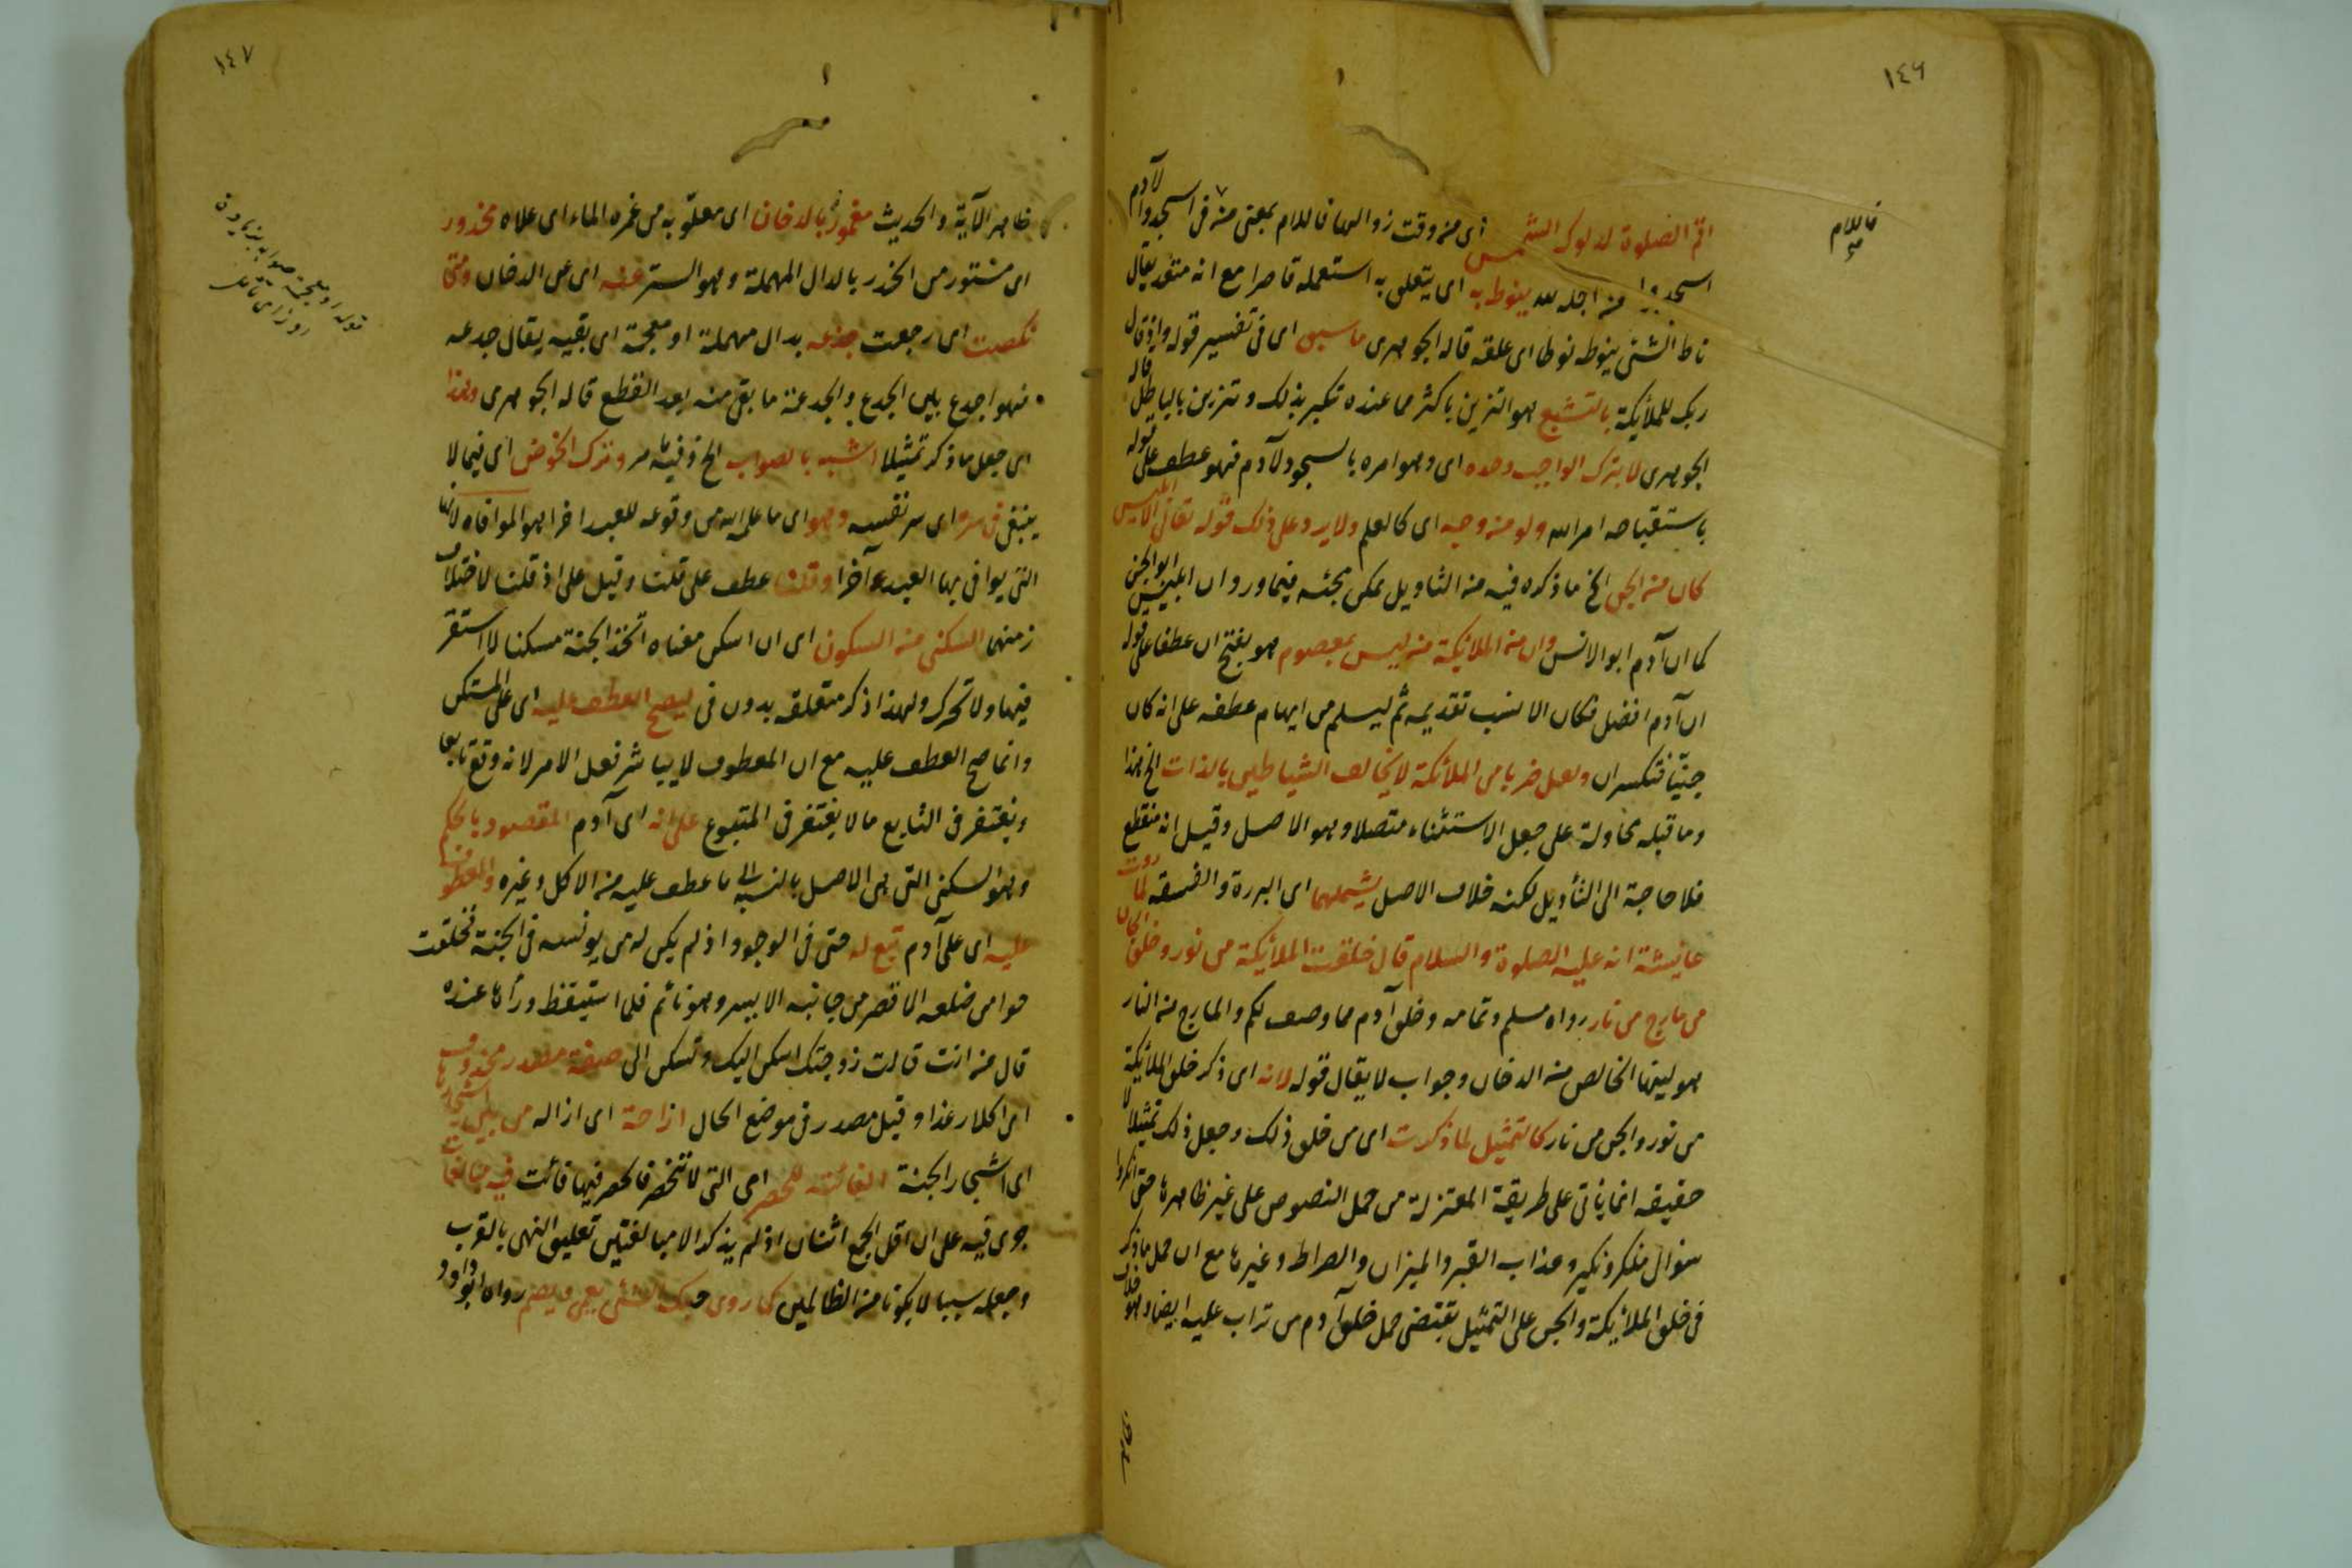 ١٤٦
فاللام
اقم الصلوة لدلوك الشمس اى من وقت زوالها فاللام بمعنى من فى اسجدوا لآدم
اسجدوا من اجله لله ينوط به اى يتعلق به استعمله قاصرا مع انه متعد يقال
ناط الشئ ينوطه نوطا اى علقه قاله الجوهرى ماسبق اى فى تفسير قوله واذ قال
ربك للملائكة بالتشبع هو التزين باكثر مما عنده تكبر بذلك وتزين بالباطل قاله
الجوهرى لا بترك الواجب وحده اى وهو امره بالسجود لآدم فهو عطف على قوله
باستقباحه امر الله ولو من وجه اى كالعلم ولا يرد على ذلك قوله تعالى الا ابليس
كان من الجن الخ ما ذكره فيه من التأويل يمكن مجئه فيما ورد ان ابليس ابو الجن
كما ان آدم ابو الانس وان من الملائكة من ليس بمعصوم هو بفتح ان عطفا على قوله
ان آدم افضل فكان الانسب تقديمه ثم ليسلم من ايهام عطفه على انه كان
جنيّا فتكسر ان ولعل ضربا من الملائكة لا يخالف الشياطين بالذات الخ هذا
وما قبله محاولة على جعل الاستثناء متصلا وهو الاصل وقيل انه منقطع
فلا حاجة الى التأويل لكنه خلاف الاصل يشملهما اى البررة والفسقه لما روت
عايشة انه عليه الصلوة والسلام قال خلقت الملائكة من نور وخلق الجان
من مارج من نار رواه مسلم وتمامه وخلق آدم مما وصف لكم والمارج من النار
هو لهبها الخالص من الدخان وجواب لا يقال قوله لانه اى ذكر خلق الملائكة
من نور والجن من نار كالتمثيل لما ذكرت اى من خلق ذلك وجعل ذلك تمثيلا لا
حقيقه انما ياتى على طريقة المعتزلة من حمل النصوص على غير ظاهرها حتى انكروا
سؤال منكر ونكير وعذاب القبر والميزان والصراط وغيرها مع ان حمل ما ذكر
فى خلق الملائكة والجن على التمثيل يقتضى حمل خلق آدم من تراب عليه ايضا وهو خلاف
١٤٧
قوله او معجمة صوابه بزيادة
ظاهر الآية والحديث مغمور بالدخان اى معلوّ به من غمره الماء اى علاه مخدور
اى مستور من الخدر بالدال المهملة وهو الستر عنه اى عن الدخان ومتى
نكصت اى رجعت جذعه بدال مهملة او معجمة اى بقيه يقال جدعه
فهو اجدع بيّن الجدع والجدعة ما بقى منه بعد القطع قاله الجوهرى وهذا
اى جعل ما ذكر تمثيلا اشبه بالصواب الخ وفيه ما مر وترك الخوض اى فيما لا
ينبغى فى سره اى سر نفسه وهو اى ما علم الله من وقوعه للعبد اخرا هو الموافاه لانها
التى يوافى بها العبد آخرا وقلنا عطف على قلنا وقيل على اذ قلنا لاختلاف
زمنهما السكنى من السكون اى ان اسكن معناه اتخذ الجنة مسكنا لا استقر
فيها ولا تتحرك ولهذا ذكر متعلقه بدون فى ليصح العطف عليه اى على المستكن
وانما صح العطف عليه مع ان المعطوف لا يباشر فعل الامر لانه وقع تابعا
ويغتفر فى التابع ما لا يغتفر فى المتبوع على انه اى آدم المقصود بالحكم
وهو السكنى التى هى الاصل بالنسبه الى ما عطف عليه من الاكل وغيره والمعطوف
عليه اى على آدم تبع له حتى فى الوجود اذ لم يكن له من يونسه فى الجنة فخلقت
حوا من ضلعه الاقصر من جانبه الايسر وهو نائم فلما استيقظ ورأها عنده
قال من انت قالت زوجتك اسكن اليك وتسكن الى صفة مصدر محذوف
اى اكلا رغدا وقيل مصدر فى موضع الحال ازاحة اى ازاله من بين اشجارها
اى اشجار الجنة الفائته للحصر اى التى لا تنحصر فالحصر فيها فائت فيه مبالغات
جرى فيه على ان اقل الجمع اثنان اذ لم يذكر الا مبالغتين تعليق النهى بالقرب
وجعله سببا لان يكونا من الظالمين كما روى حبك الشئ يعمى ويصم رواه ابو داود